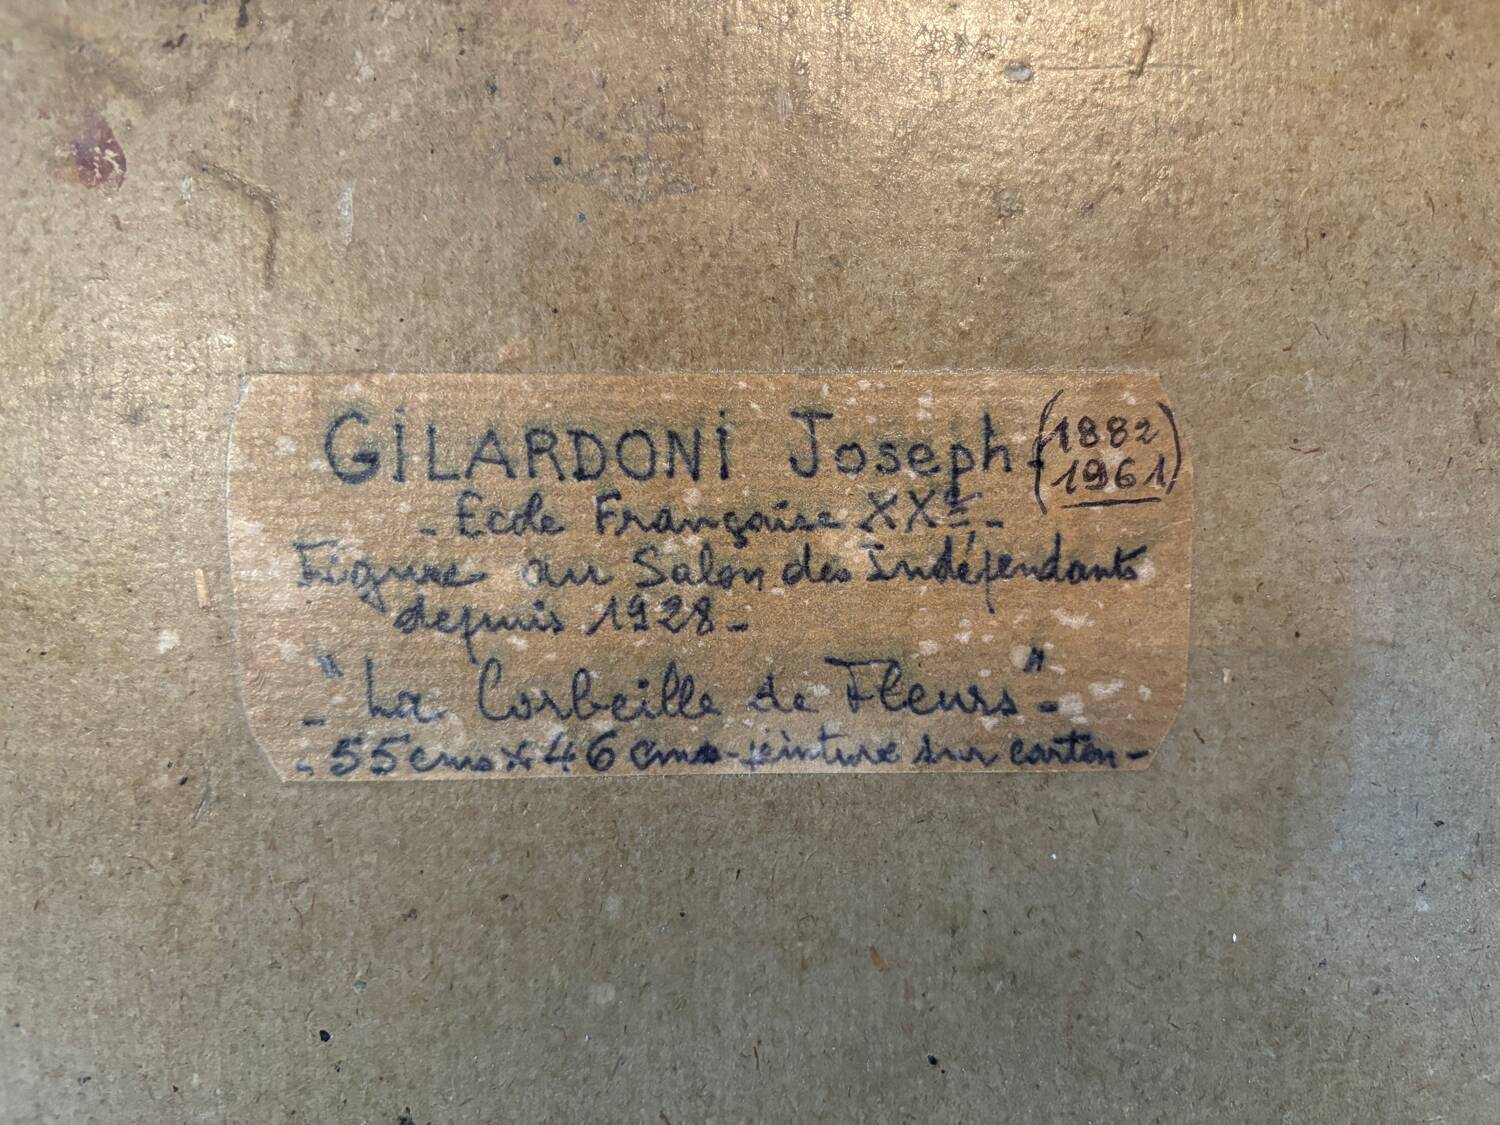 GiLARDONi Joseph - (1882
1961)
- Ecole Française XXe -
Figure au Salon des Indépendants
depuis 1928 -
- "La Corbeille de Fleurs" -
- 55 cms x 46 cms - peinture sur carton -